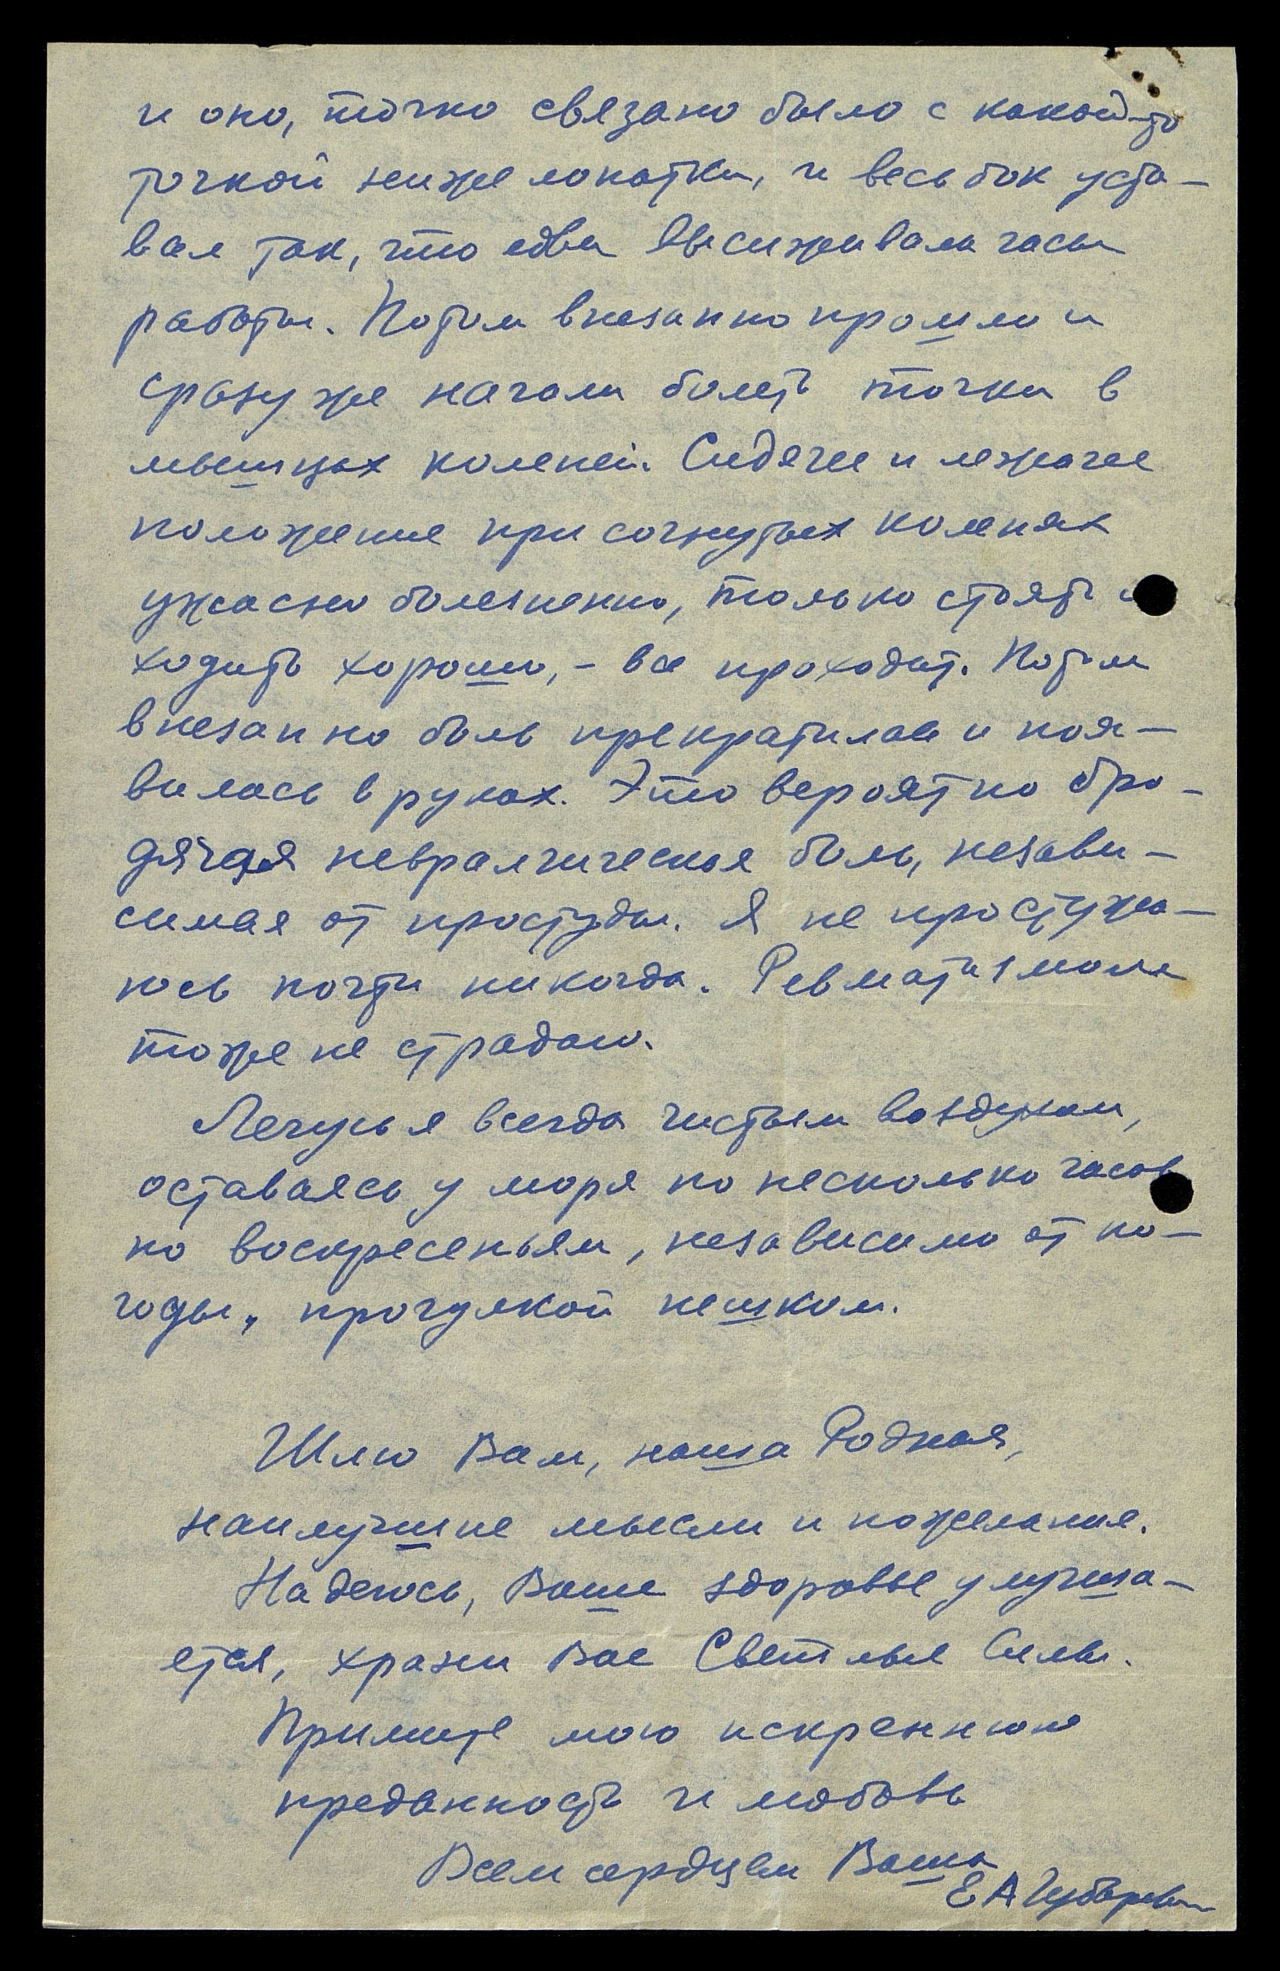 и оно, точно связано было с какой-то
точкой ниже лопатки, и весь бок уста-
вал так, что едва высиживала часы
работы. Потом внезапно прошло и
сразу же начали болеть точки в
мышцах коленей. Сидячее и лежачее
положение при согнутых коленях
ужасно болезненно, только стоять и
ходить хорошо, - все проходит. Потом
внезапно боль прекратилась и поя-
вилась в руках. Это вероятно бро-
дячая невралгическая боль, незави-
симая от простуды. Я не простужа-
юсь почти никогда. Ревматизмом
тоже не страдаю.
Лечусь я всегда чистым воздухом,
оставаясь у моря по несколько часов
по воскресеньям, независимо от по-
годы, прогулкой пешком.
Шлю Вам, наша Родная,
наилучшие мысли и пожелания.
Надеюсь, Ваше здоровье улучша-
ется, храни Вас Светлые Силы.
Примите мою искреннюю
преданность и любовь
Всем сердцем Ваша
Е А